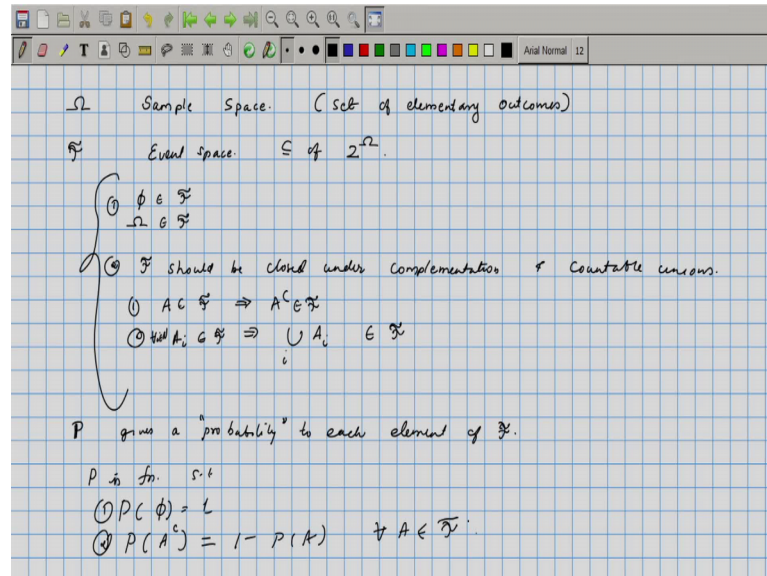 Arial Normal 12
Ω Sample Space. (Set of elementary outcomes)
F Event space. ⊆ of 2^Ω.
① ϕ ∈ F
Ω ∈ F
② F should be closed under complementation & countable unions.
① A ∈ F ⇒ A^C ∈ F
② A_i ∈ F ⇒ ∪_i A_i ∈ F
P gives a "probability" to each element of F.
P is fn. s.t
① P(ϕ) = 1
② P(A^c) = 1 - P(A) ∀ A ∈ F.